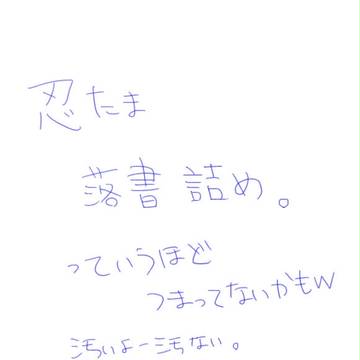 忍たま
落書詰め。
っていうほど
つまってないかもw
汚いよー汚ない。